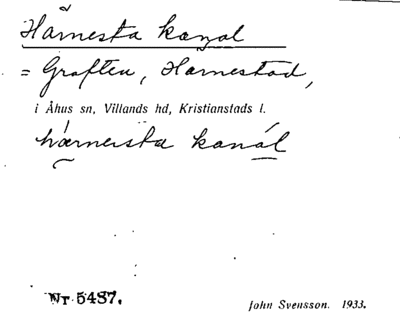 Härnesta kanal
= Graften, Harnestad,
i Åhus sn, Villands hd, Kristianstads l.
hárnersta kanál
Nr. 5487.
John Svensson. 1933.